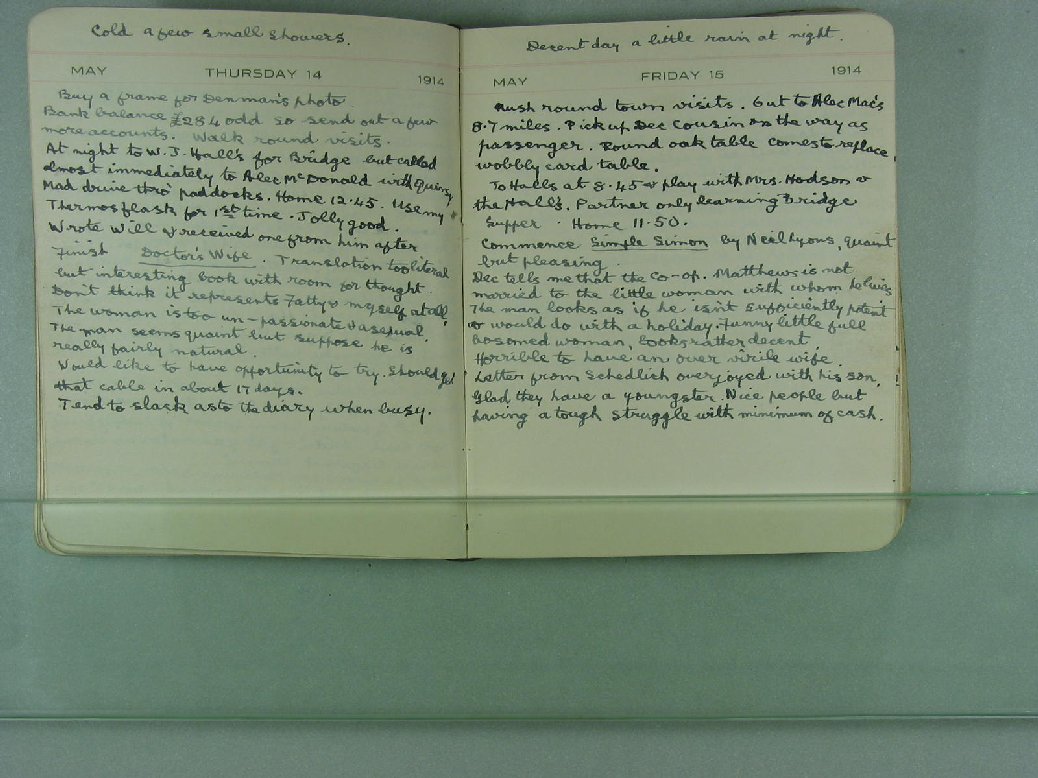 Cold a few small showers.
MAY THURSDAY 14 1914
Buy a frame for Denman's photo.
Bank balance £284 odd so send out a few
more accounts. Walk round visits.
At night to W. J. Hall's for Bridge but called
almost immediately to Alec McDonald with quinsy
Mad drive thro' paddocks. Home 12.45. Use my
Thermos flask for 1st time. Jolly good.
Wrote Will & received one from him after
Finish Doctor's Wife. Translation too literal
but interesting book with room for thought.
Don't think it represents Fatty & myself at all
The woman is too un-passionate & asexual.
The man seems quaint but suppose he is
really fairly natural.
Would like to have opportunity to try. Should get
that cable in about 17 days.
Tend to slack as to the diary when busy.
Decent day a little rain at night.
MAY FRIDAY 15 1914
Rush round town visits. Out to Alec Mac's
8.7 miles. Pick up Dec Cousin on the way as
passenger. Round oak table comes to replace
wobbly card table.
To Halls at 8.45 & play with Mrs. Hodson &
the Hall's. Partner only learning Bridge
Supper. Home 11.50.
Commence Simple Simon by Neil Lyons, quaint
but pleasing.
Dec tells me that the Co-op. Matthews is not
married to the little woman with whom he lives
The man looks as if he isn't sufficiently potent
& would do with a holiday. Funny little full
bosomed woman, looks rather decent.
Horrible to have an over virile wife.
Letter from Schedlich overjoyed with his son.
Glad they have a youngster. Nice people but
having a tough struggle with minimum of cash.